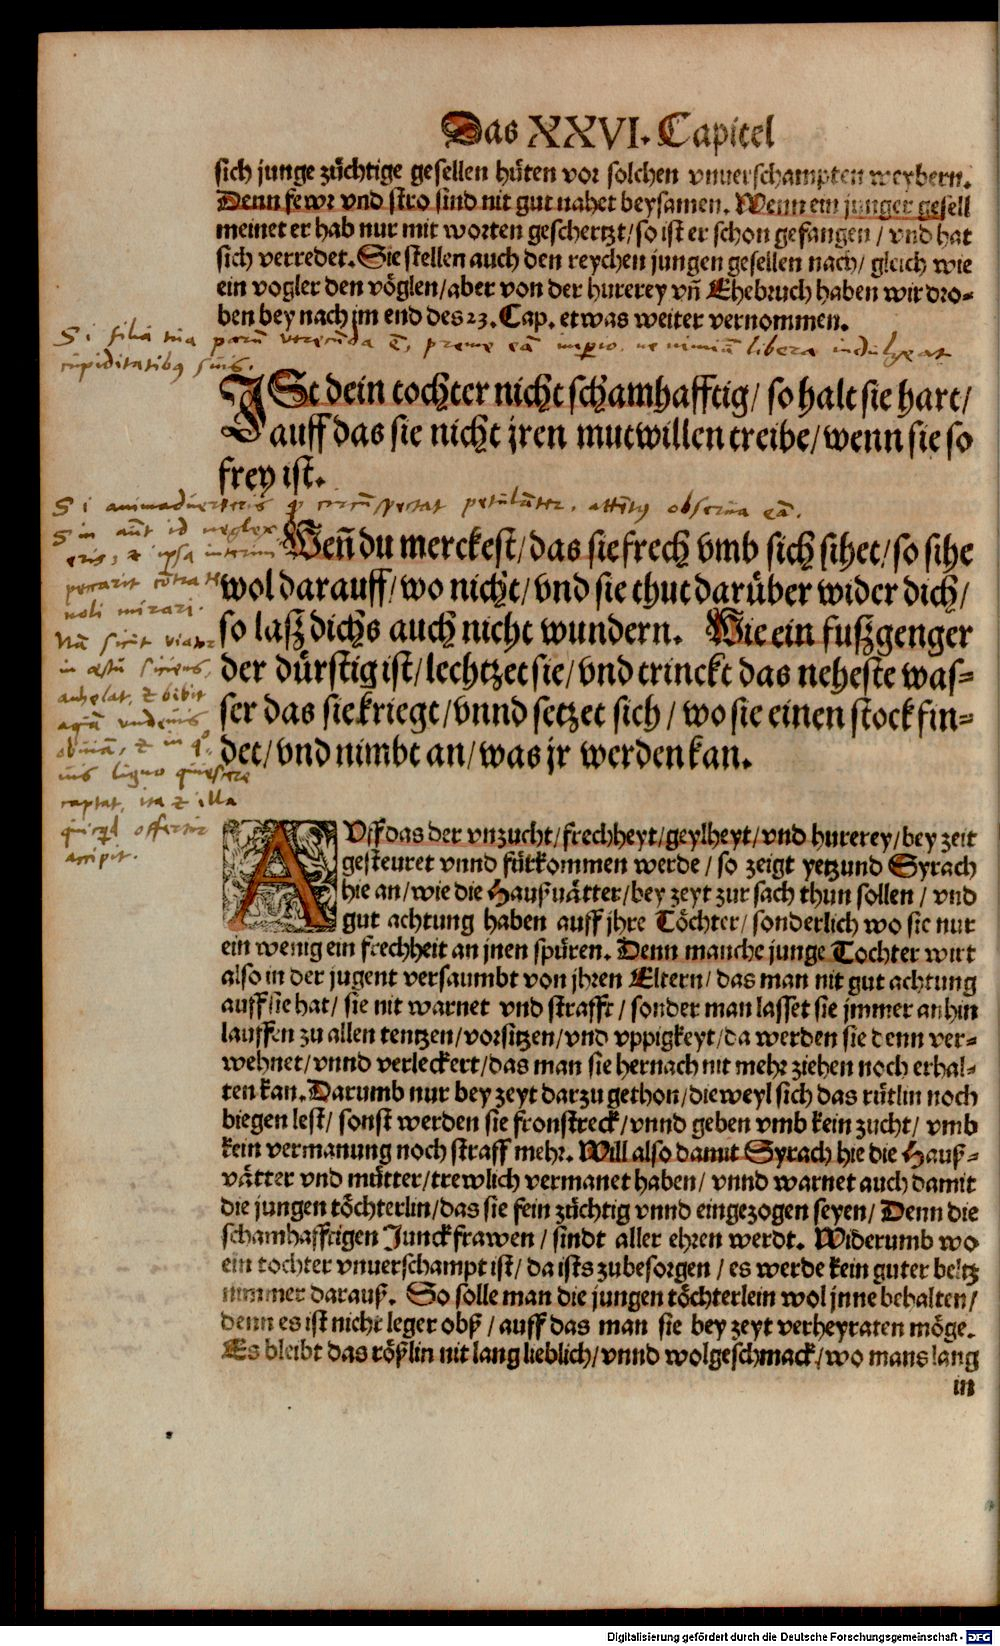 Das XXVI. Capitel
sich junge züchtige gesellen hüten vor solchen vnuerschampten weybern.
Denn fewr vnd stro sind nit gut nahet beysamen. Wenn ein junger gesell
meinet er hab nur mit worten geschertzt/ so ist er schon gefangen / vnd hat
sich verredet. Sie stellen auch den reychen jungen gesellen nach/ gleich wie
ein vogler den vöglen/ aber von der hurerey vñ Ehebruch haben wir dro-
ben bey nach im end des 23. Cap. etwas weiter vernommen.
Si filia tua parũ verecũda ẽ, preme eã imperio, ne nimiã libera indulgeat
cupiditatibus suis.
ISt dein tochter nicht schamhafftig/ so halt sie hart/
auff das sie nicht jren mutwillen treibe/ wenn sie so
frey ist.
Si animadverteris circũspectat petulãter, attẽtus observa eã.
Sin aũt id neglex
eris, & ipsa interim
peccarit cõtra te
noli mirari.
Nã sicut viator
in æstu sitiens,
anhelat, & bibit
aquã
obviã, & in
ligno quiescere
captat, ita & illa
quicqd offertur
accipit.
Weñ du merckest/ das sie frech vmb sich sihet/ so sihe
wol darauff/ wo nicht/ vnd sie thut darüber wider dich/
so laß dichs auch nicht wundern. Wie ein fußgenger
der dürstig ist/ lechtzet sie/ vnd trinckt das neheste was-
ser das sie kriegt/ vnnd setzet sich / wo sie einen stock fin-
det/ vnd nimbt an/ was jr werden kan.
AVff das der vnzucht/ frechheyt/ geylheyt/ vnd hurerey/ bey zeit
gesteuret vnnd fürkommen werde / so zeigt yetzund Syrach
hie an/ wie die Haußuätter/ bey zeyt zur sach thun sollen / vnd
gut achtung haben auff jhre Töchter/ sonderlich wo sie nur
ein wenig ein frechheit an jnen spüren. Denn manche junge Tochter wirt
also in der jugent versaumbt von jhren Eltern/ das man nit gut achtung
auff sie hat/ sie nit warnet vnd strafft / sonder man lasset sie jmmer anhin
lauffen zu allen tentzen/ vorsitzen/ vnd vppigkeyt/ da werden sie denn ver-
wehnet/ vnnd verleckert/ das man sie hernach nit mehr ziehen noch erhal-
ten kan. Darumb nur bey zeyt darzu gethon/ dieweyl sich das rütlin noch
biegen lest/ sonst werden sie fronstreck/ vnnd geben vmb kein zucht/ vmb
kein vermanung noch straff mehr. Will also damit Syrach hie die Hauß-
vätter vnd mütter/ trewlich vermanet haben/ vnnd warnet auch damit
die jungen töchterlin/ das sie fein züchtig vnnd eingezogen seyen/ Denn die
schamhafftigen Junckfrawen / sindt aller ehren werdt. Widerumb wo
ein tochter vnuerschampt ist/ da ists zubesorgen / es werde kein guter beltz
nimmer darauß. So solle man die jungen töchterlein wol jnne behalten/
denn es ist nicht leger obß / auff das man sie bey zeyt verheyraten möge.
Es bleibt das rößlin nit lang lieblich/ vnnd wolgeschmack/ wo mans lang
in
Digitalisierung gefördert durch die Deutsche Forschungsgemeinschaft - DFG